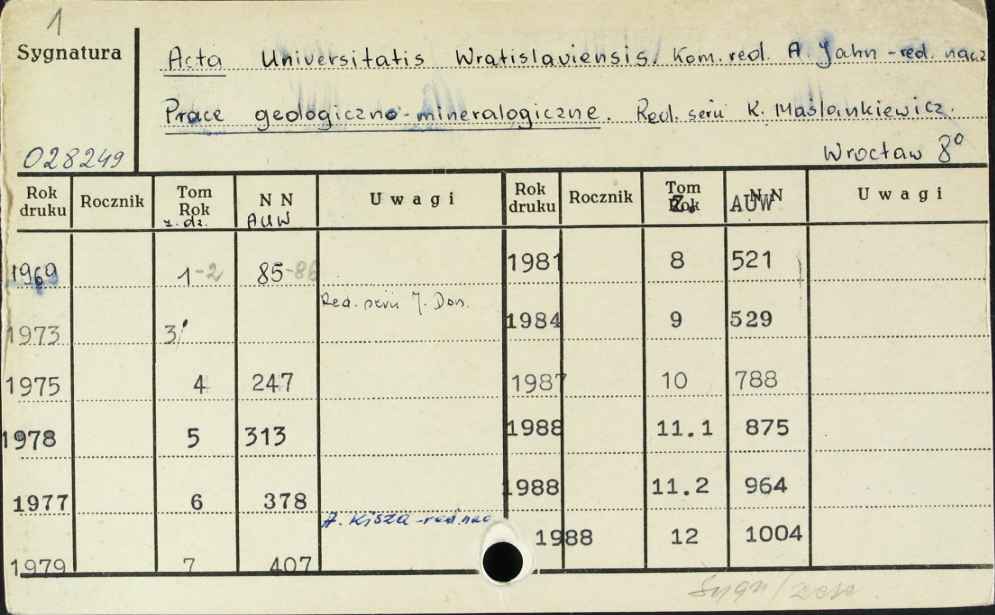 1
Sygnatura
Acta Universitatis Wratislaviensis. Kom. red. A. Jahn - red. nacz
Prace geologiczno-mineralogiczne. Red. serii K. Maślankiewicz.
028249
Wrocław 8°
Rok druku Rocznik Tom Rok z. dz. N N AUW Uwagi Rok druku Rocznik Tom Rok Z. N N AUW Uwagi
1969 1-2 85-86 1981 8 521
Red. serii J. Don.
1973 3 1984 9 529
1975 4 247 1987 10 788
1978 5 313 1988 11.1 875
1977 6 378 1988 11.2 964
A. Kisza - red. nac
1988 12 1004
1979 7 407